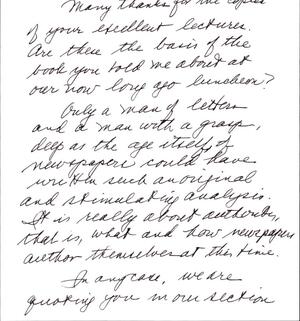 Many thanks for the copies
of your excellent lectures.
Are these the basis of the
book you told me about at
our now long ago luncheon?
Only a man of letters
and a man with a grasp,
deep as the age itself, of
newspapers could have
written such an original
and stimulating analysis.
It is really about authorities,
that is, what and how newspapers
author themselves at this time.
In any case, we are
quoting you in our section